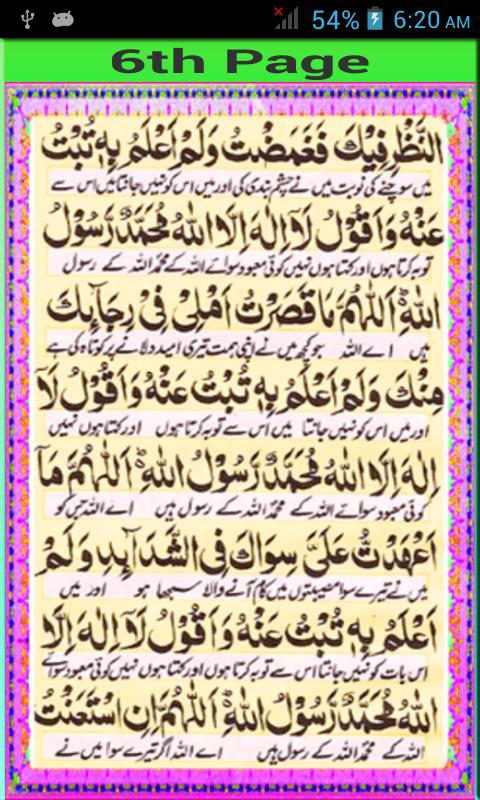 54% 6:20 AM
6th Page
النَّظْرِ فِيْكَ فَغَمَضْتُ وَلَمْ اَعْلَمْ بِهٖ تُبْتُ
میں سوچنے کی نوبت میں نے چشم بندی کی اور میں اس کو نہیں جانتا میں اس سے
عَنْهُ وَاَقُوْلُ لَآ اِلٰهَ اِلَّا اللهُ مُحَمَّدٌ رَّسُوْلُ
توبہ کرتا ہوں اور کہتا ہوں نہیں کوئی معبود سوائے اللہ کے محمد اللہ کے رسول
اللهِ ؕ اَللّٰهُمَّ مَا قَصَرْتُ اَهْلِىْ فِىْ رِجَآىِٕكَ
ہیں اے اللہ جو کچھ میں نے اپنی ہمت تیری امید دلانے پر کوتاہ کی ہے
مِنْكَ وَلَمْ اَعْلَمْ بِهٖ تُبْتُ عَنْهُ وَاَقُوْلُ لَآ
اور میں اس کو نہیں جانتا میں اس سے توبہ کرتا ہوں اور کہتا ہوں نہیں
اِلٰهَ اِلَّا اللهُ مُحَمَّدٌ رَّسُوْلُ اللهِ ؕ اَللّٰهُمَّ مَآ
کوئی معبود سوائے اللہ کے محمد اللہ کے رسول ہیں اے اللہ جس کو
اعْهَدْتُ عَلَىَّ سِوَاكَ فِى الشَّدَآىِٕدِ وَلَمْ
میں نے تیرے سوا مصیبتوں میں کام آنے والا سمجھا ہو اور میں
اَعْلَمْ بِهٖ تُبْتُ عَنْهُ وَاَقُوْلُ لَآ اِلٰهَ اِلَّا
اس بات کو نہیں جانتا اس سے توبہ کرتا ہوں اور کہتا ہوں نہیں کوئی معبود سوائے
اللهُ مُحَمَّدٌ رَّسُوْلُ اللهِ ؕ اَللّٰهُمَّ اِنِ اسْتَعَنْتُ
اللہ کے محمد اللہ کے رسول ہیں اے اللہ اگر تیرے سوا میں نے